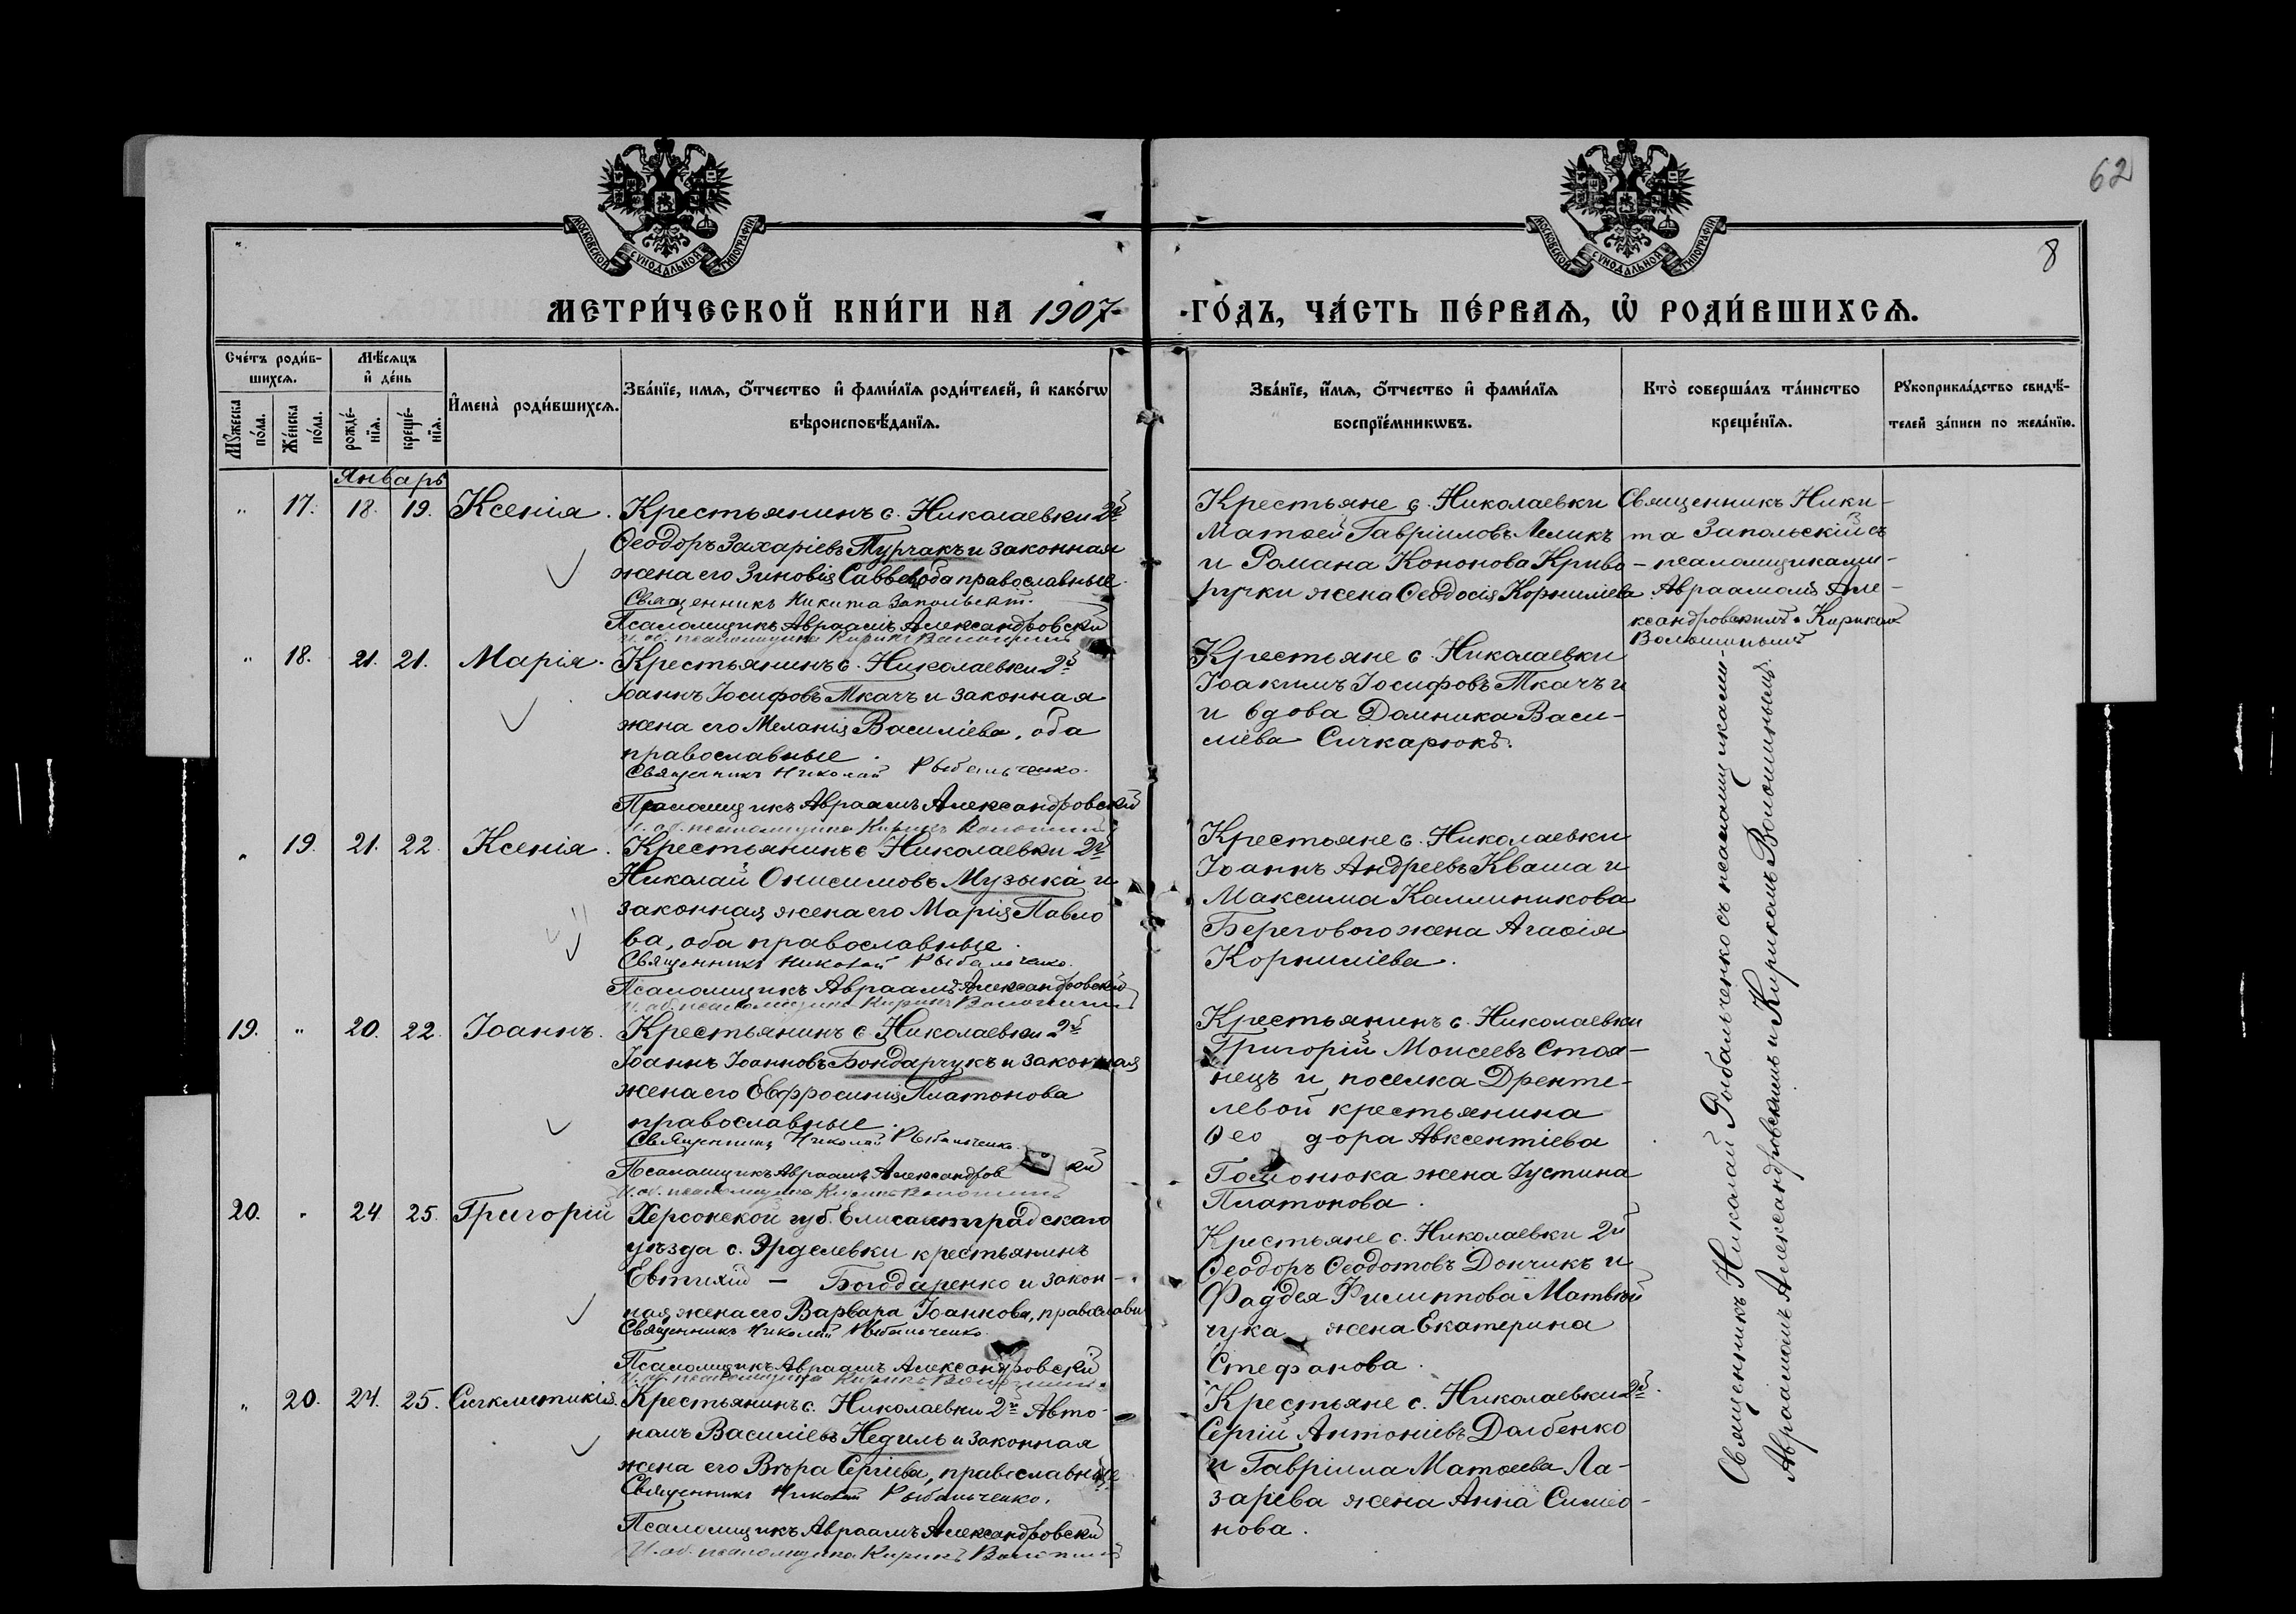 62
8
МОСКОВСКОЙ СѴНОДАЛЬНОЙ ТИПОГРАФІИ
МОСКОВСКОЙ СѴНОДАЛЬНОЙ ТИПОГРАФІИ
МЕТРИ́ЧЕСКОЙ КНИ́ГИ НА 1907
ГО́ДЪ, ЧА́СТЬ ПЕ́РВАѦ, Ѽ РОДИ́ВШИХСѦ.
Сче́тъ роди́в-
шихсѧ.
Мꙋ́жеска
по́ла.
Же́нска
по́ла.
Мѣ́сѧцъ
и҆ де́нь
рожде́-
нїѧ.
креще́-
нїѧ.
И҆мена̀ роди́вшихсѧ.
Зва́нїе, имѧ, ѻ҆́тчество и҆ фами́лїѧ роди́телей, и҆ како́гѡ
вѣроисповѣ́данїѧ.
Зва́нїе, и҆́мѧ, ѻ҆́тчество и҆ фами́лїѧ
воспрїе́мникѡвъ.
Кто̀ соверша́лъ та́инство
креще́нїѧ.
Рꙋкоприкла́дство свидѣ́-
телей за́писи по жела́нїю.
Январь
" 17. 18. 19. Ксенія.
Крестьянинъ с. Николаевки 2й
Ѳеодоръ Захаріевъ Турчакъ и законная
жена его Зиновія Саввева, оба православные.
Священникъ Никита Запольскій.
Псаломщикъ Авраамъ Александровскій
И. об. псаломщика Кирикъ Волошинъ
Крестьяне с. Николаевки
Матѳей Гавріиловъ Леликъ
и Романа Кононова Криво-
ручки жена Ѳеодосія Корниліева
Священникъ Ники-
та Запольскій съ
псаломщиками
Авраамомъ Але-
ксандровскимъ и Кирикомъ
Волошинымъ
" 18. 21. 21. Марія.
Крестьянинъ с. Николаевки 2й
Іоаннъ Іосифовъ Ткачъ и законная
жена его Меланія Василіева, оба
православные.
Священникъ Николай Рыбальченко.
Псаломщикъ Авраамъ Александровскій
И. об. псаломщика Кирикъ Волошинъ
Крестьяне с. Николаевки
Іоакимъ Іосифовъ Ткачъ и
и вдова Домника Васи-
ліева Сичкарюкъ.
" 19. 21. 22. Ксенія.
Крестьянинъ с Николаевки 2й
Николай Онисимовъ Музыка и
законная жена его Марія Павло
ва, оба православные.
Священникъ Николай Рыбальченко.
Псаломщикъ Авраамъ Александровскій
И. об. псаломщика Кирикъ Волошинъ
Крестьяне с. Николаевки
Іоаннъ Андреевъ Кваша и
Максима Каллиникова
Берегового жена Агаѳія
Корниліева.
19. " 20. 22. Іоаннъ.
Крестьянинъ с Николаевки 2й
Іоаннъ Іоанновъ Бондарчукъ и законная
жена его Евфросинія Платонова
православные.
Священникъ Николай Рыбальченко.
Псаломщикъ Авраамъ Александров кій
И. об. псаломщика Кирикъ Волошинъ
Крестьянинъ с. Николаевки
Григорій Моисеевъ Стоя-
нецъ и поселка Дренте-
левой крестьянина
Ѳео дора Авксентіева
Гомонюка жена Іустина
Платонова.
20. " 24. 25. Григорій
Херсонской губ. Елисаветградскаго
уѣзда с. Эрделевки крестьянинъ
Евтихій - Бондаренко и закон-
ная жена его Варвара Іоаннова, православн
Священникъ Николай Рыбальченко.
Псаломщикъ Авраамъ Александровскій
И. об. псаломщика Кирикъ Волошинъ
Крестьяне с. Николаевки 2й
Ѳеодоръ Ѳеодотовъ Дончикъ и
Фаддея Филиппова Матвѣй
чука жена Екатерина
Стефанова.
" 20. 24. 25. Сигклитикія.
Крестьянинъ с. Николаевки 2й Авто-
номъ Василіевъ Недиль и законная
жена его Вѣра Сергіева, православные
Священникъ Николай Рыбальченко.
Псаломщикъ Авраамъ Александровскій
И. об. псаломщика Кирикъ Волошинъ
Крестьяне с. Николаевки 2й.
Сергій Антоніевъ Долбенко
и Гавріила Матѳеева Ла-
зарева жена Анна Симео-
нова.
Священникъ Николай Рыбальченко съ псаломщиками
Авраамомъ Александровскимъ и Кирикомъ Волошинымъ.